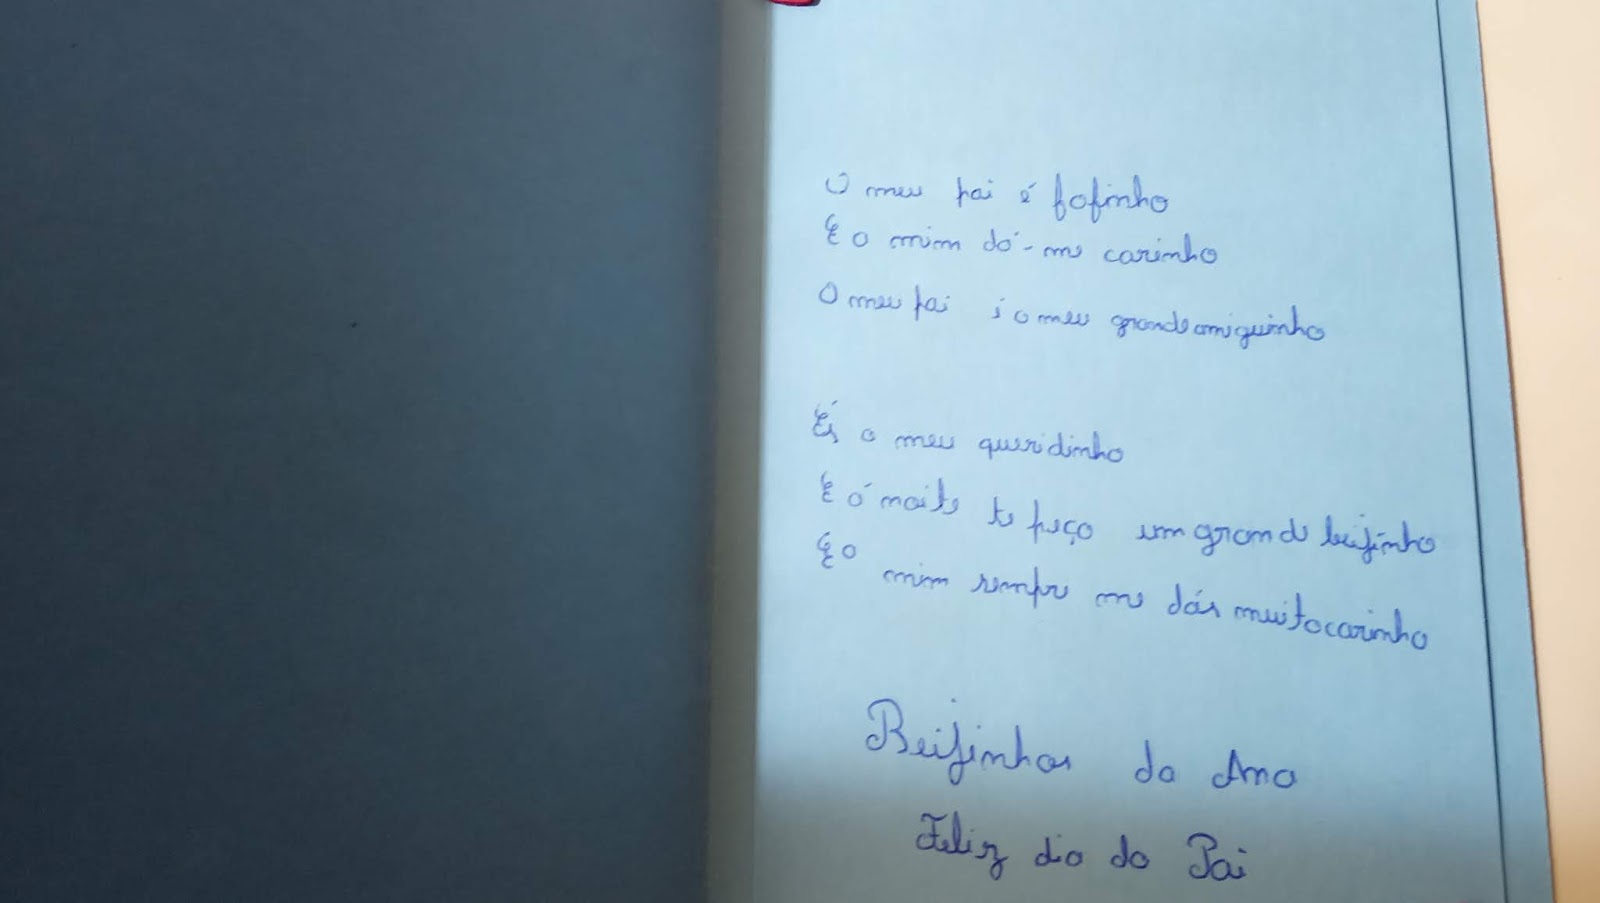 O meu pai é fofinho
E a mim dá-me carinho
O meu pai é o meu grande amiguinho
És o meu queridinho
E á noite te peço um grande beijinho
E a mim sempre me dás muito carinho
Beijinhos da Ana
Feliz dia do Pai